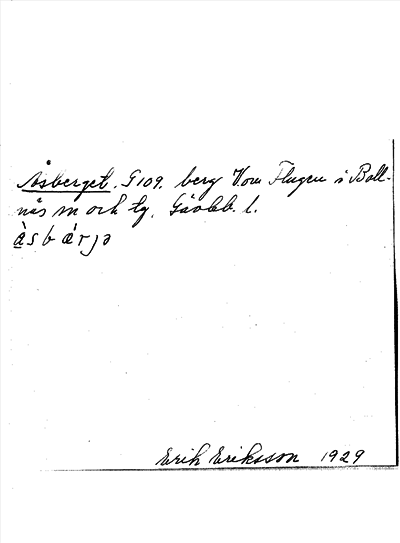 Åsberget. G109. berg Vom Flugen i Boll-
näs sn och tg. Gävleb. l.
à s b æ̀ r j ə
Erik Eriksson 1929